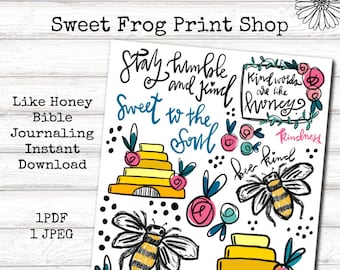 Sweet Frog Print Shop
Like Honey
Bible
Journaling
Instant
Download
1PDF
1 JPEG
Stay humble
and kind
Sweet to the
Soul
Kind words
are like
honey
kindness
bee kind